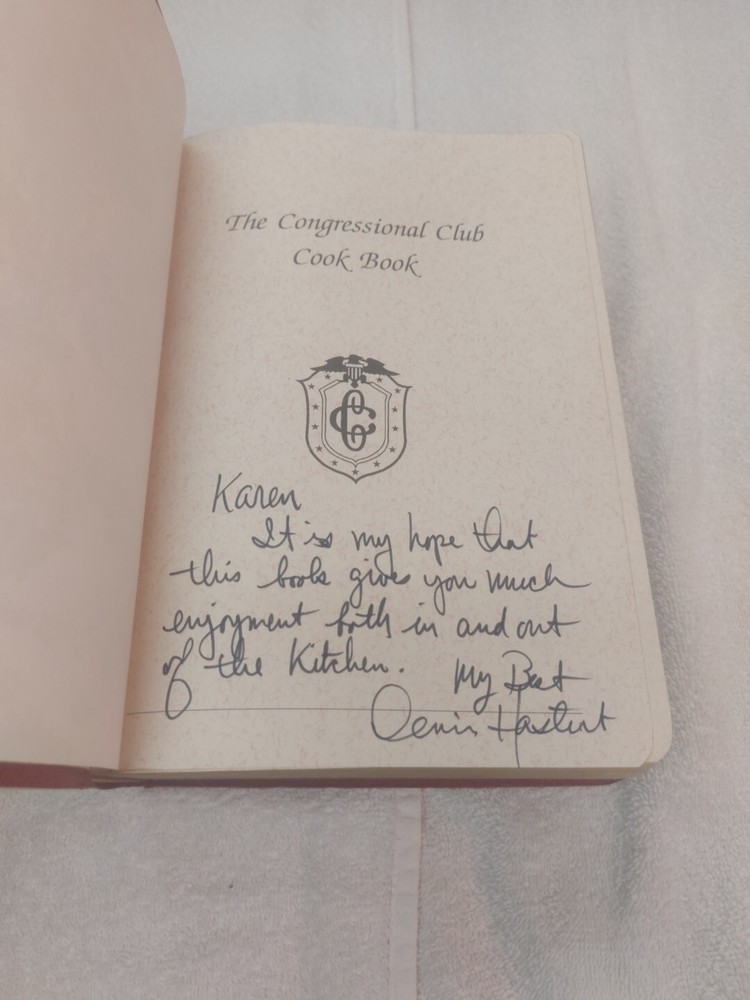 The Congressional Club
Cook Book
CC
Karen
It is my hope that
this book gives you much
enjoyment both in and out
of the Kitchen. My Best
Denis Hastert